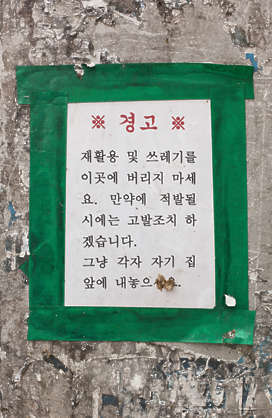 ※ 경고 ※
재활용 및 쓰레기를
이곳에 버리지 마세
요. 만약에 적발될
시에는 고발조치 하
겠습니다.
그냥 각자 자기 집
앞에 내놓으